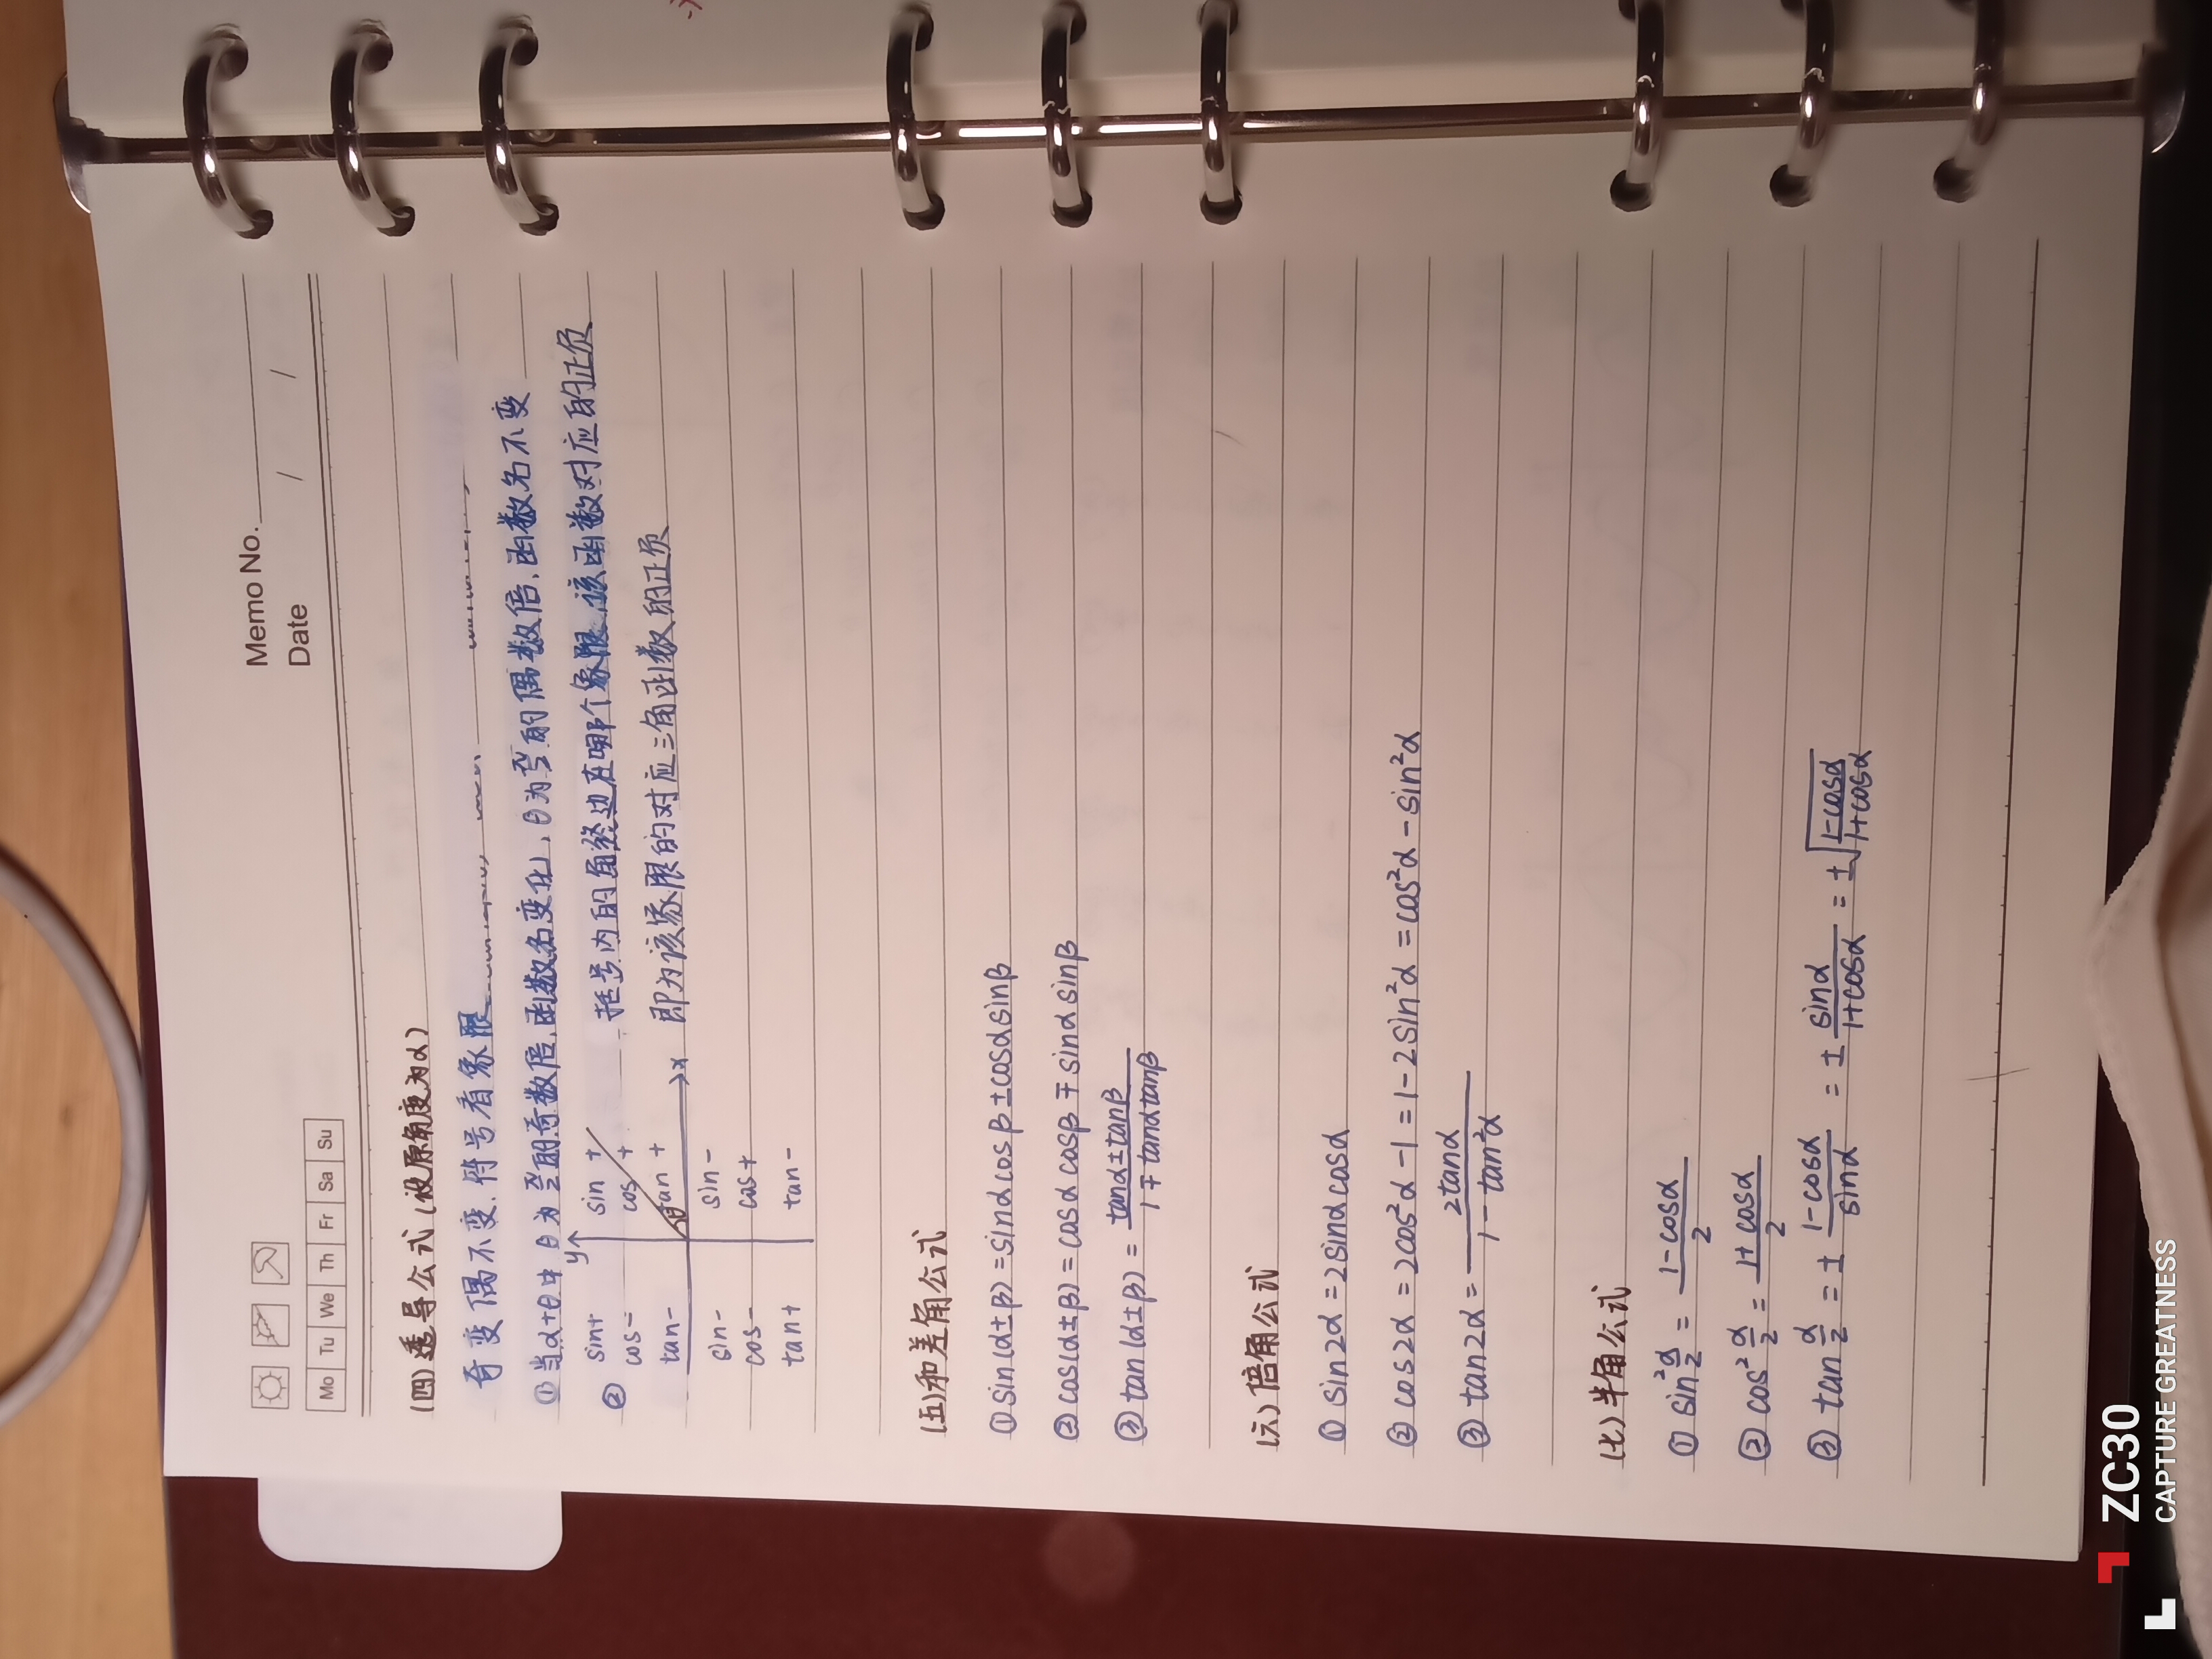 Memo No.
Mo Tu We Th Fr Sa Su
Date / /
(四)透导公式(设原角度为α)
奇变偶不变.符号看象限
①当α+θ中θ为π/2的奇数倍,函数名变化,θ为π/2的偶数倍,函数名不变
② 括号内的角终边在哪个象限,该函数对应的正负
即为该象限的对应三角函数的正负
y
sin+ sin +
cos- cos +
tan- tan +
θ
x
sin- sin-
cos- cos+
tan+ tan-
(五)和差角公式
①sin(α±β)=sinαcosβ±cosαsinβ
②cos(α±β)=cosαcosβ∓sinαsinβ
③tan(α±β)=(tanα±tanβ)/(1∓tanαtanβ)
(六)倍角公式
①sin2α=2sinαcosα
②cos2α=2cos²α-1=1-2sin²α=cos²α-sin²α
③tan2α=2tanα/(1-tan²α)
(七)半角公式
①sin²α/2=(1-cosα)/2
②cos²α/2=(1+cosα)/2
③tanα/2=±(1-cosα)/sinα=±sinα/(1+cosα)=±√((1-cosα)/(1+cosα))
ZC30
CAPTURE GREATNESS